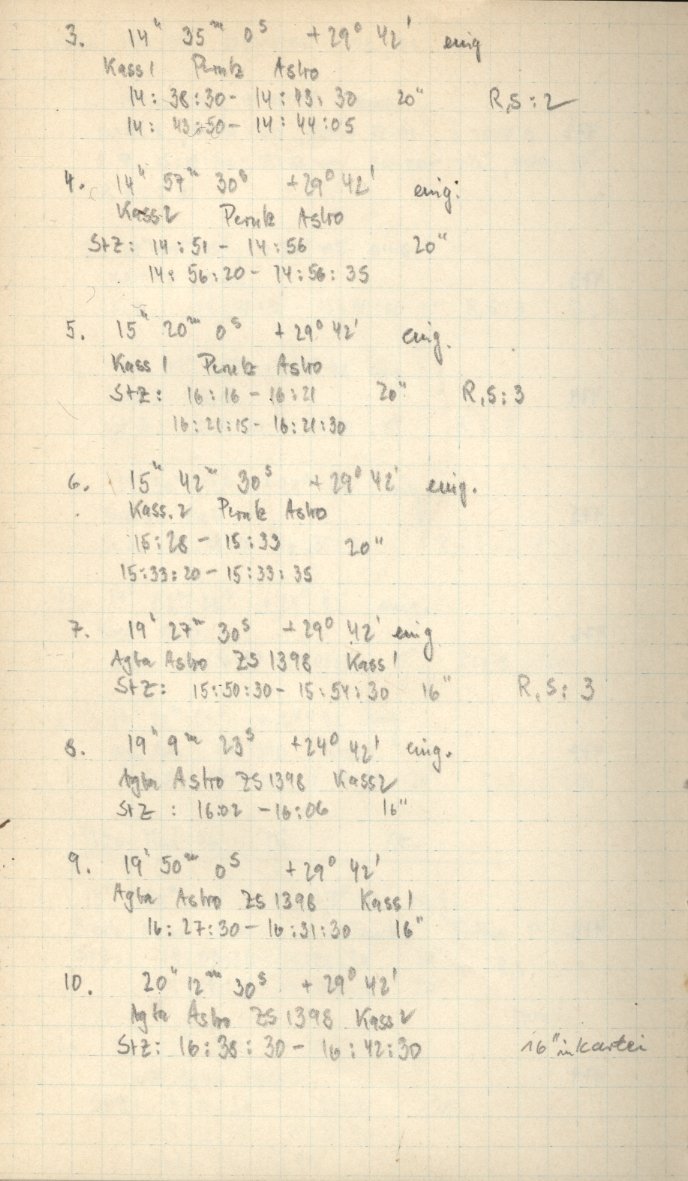 3. 14ʰ 35ᵐ 0ˢ +29° 42' einig
Kass 1 Perutz Astro
14:38:30 - 14:43:30 20" R,S: 2
14:43:50 - 14:44:05
4. 14ʰ 57ᵐ 30ˢ +29° 42' einig:
Kass. 2 Perutz Astro
StZ: 14:51 - 14:56 20"
14:56:20 - 14:56:35
5. 15ʰ 20ᵐ 0ˢ +29° 42' einig.
Kass 1 Perutz Astro
StZ: 16:16 - 16:21 20" R,S: 3
16:21:15 - 16:21:30
6. 15ʰ 42ᵐ 30ˢ +29° 42' einig.
Kass. 2 Perutz Astro
15:28 - 15:33 20"
15:33:20 - 15:33:35
7. 19ʰ 27ᵐ 30ˢ +29° 42' einig
Agfa Astro ZS 1398 Kass 1
StZ: 15:50:30 - 15:54:30 16" R,S: 3
8. 19ʰ 9ᵐ 23ˢ +24° 42' einig.
Agfa Astro ZS 1398 Kass 2
StZ: 16:02 - 16:06 16"
9. 19ʰ 50ᵐ 0ˢ +29° 42'
Agfa Astro ZS 1398 Kass 1
16:27:30 - 16:31:30 16"
10. 20ʰ 12ᵐ 30ˢ +29° 42'
Agfa Astro ZS 1398 Kass 2
StZ: 16:38:30 - 16:42:30 16" in Kartei